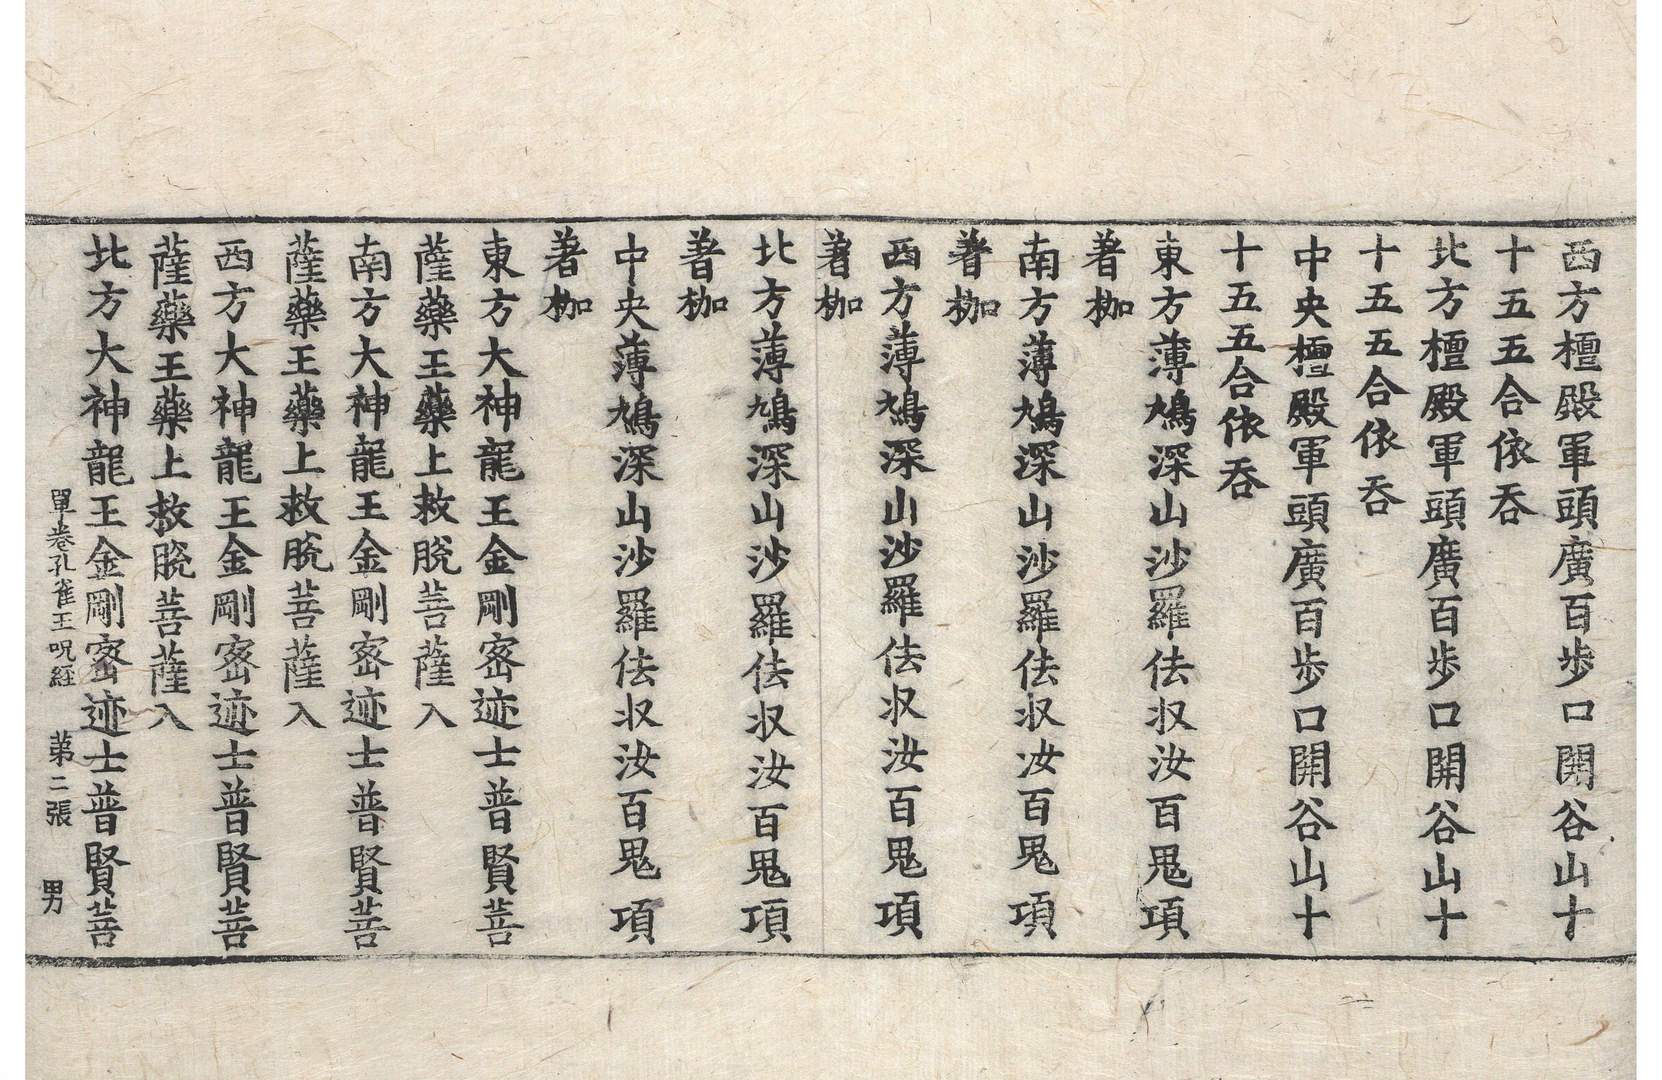 西方檀殿軍頭廣百步口開谷山十
十五五合依吞
北方檀殿軍頭廣百步口開谷山十
十五五合依吞
中央檀殿軍頭廣百步口開谷山十
十五五合依吞
東方薄鳩深山沙羅佉収汝百鬼項
著枷
南方薄鳩深山沙羅佉収汝百鬼項
著枷
西方薄鳩深山沙羅佉収汝百鬼項
著枷
北方薄鳩深山沙羅佉収汝百鬼項
著枷
中央薄鳩深山沙羅佉収汝百鬼項
著枷
東方大神龍王金剛密迹士普賢菩
薩藥王藥上救脫菩薩入
南方大神龍王金剛密迹士普賢菩
薩藥王藥上救脫菩薩入
西方大神龍王金剛密迹士普賢菩
薩藥王藥上救脫菩薩入
北方大神龍王金剛密迹士普賢菩
單卷孔雀王呪經 第二張 男